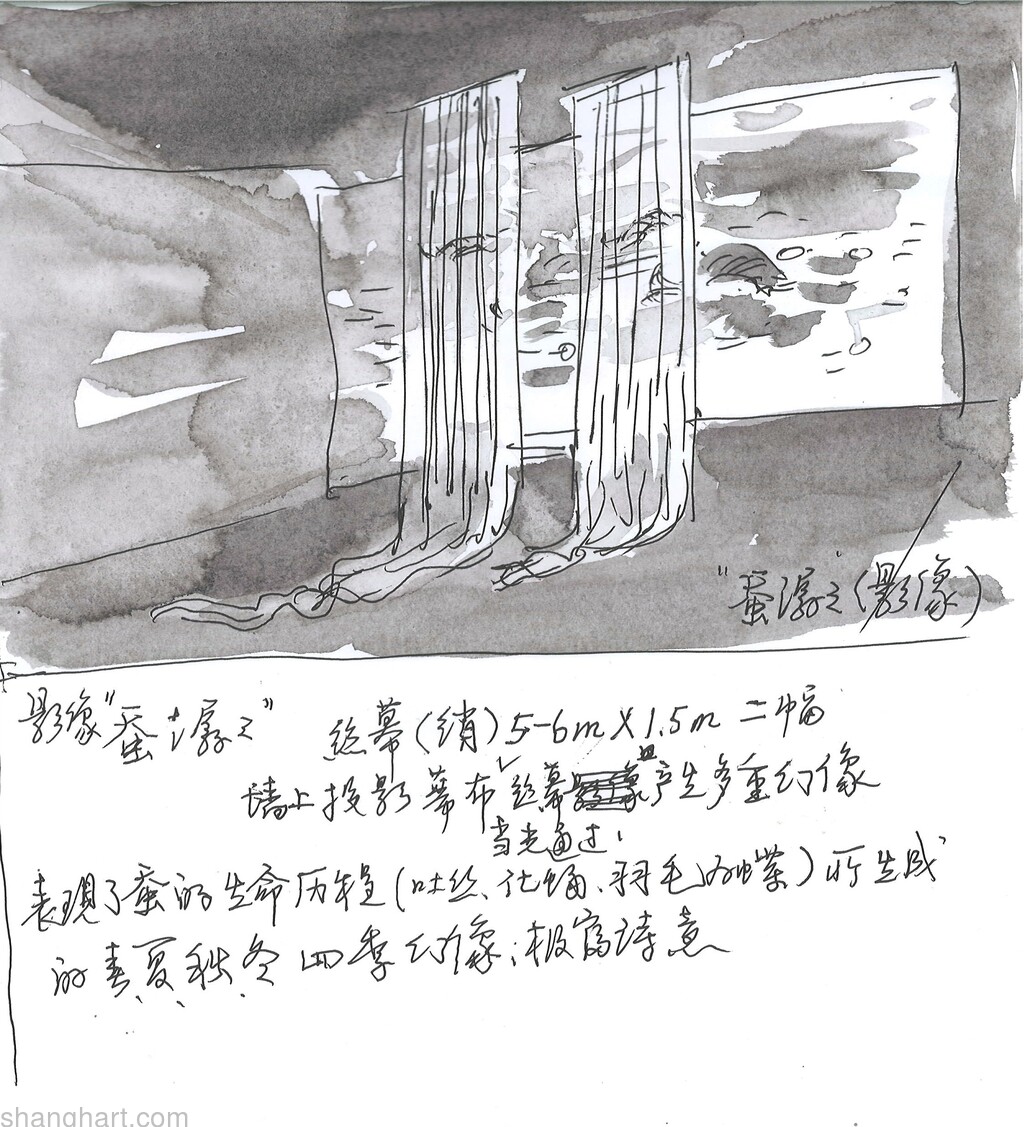 "蚕潺々"(影像)
影像"蚕潺々" 丝幕(绡)5-6m X 1.5m 二幅
墙上投影幕布 丝幕 产生多重幻像
当光通过
表現了蚕的生命历程(吐丝、化蛹、羽毛 蝶)所生成
的春、夏、秋、冬四季幻像,极富诗意
shanghart.com